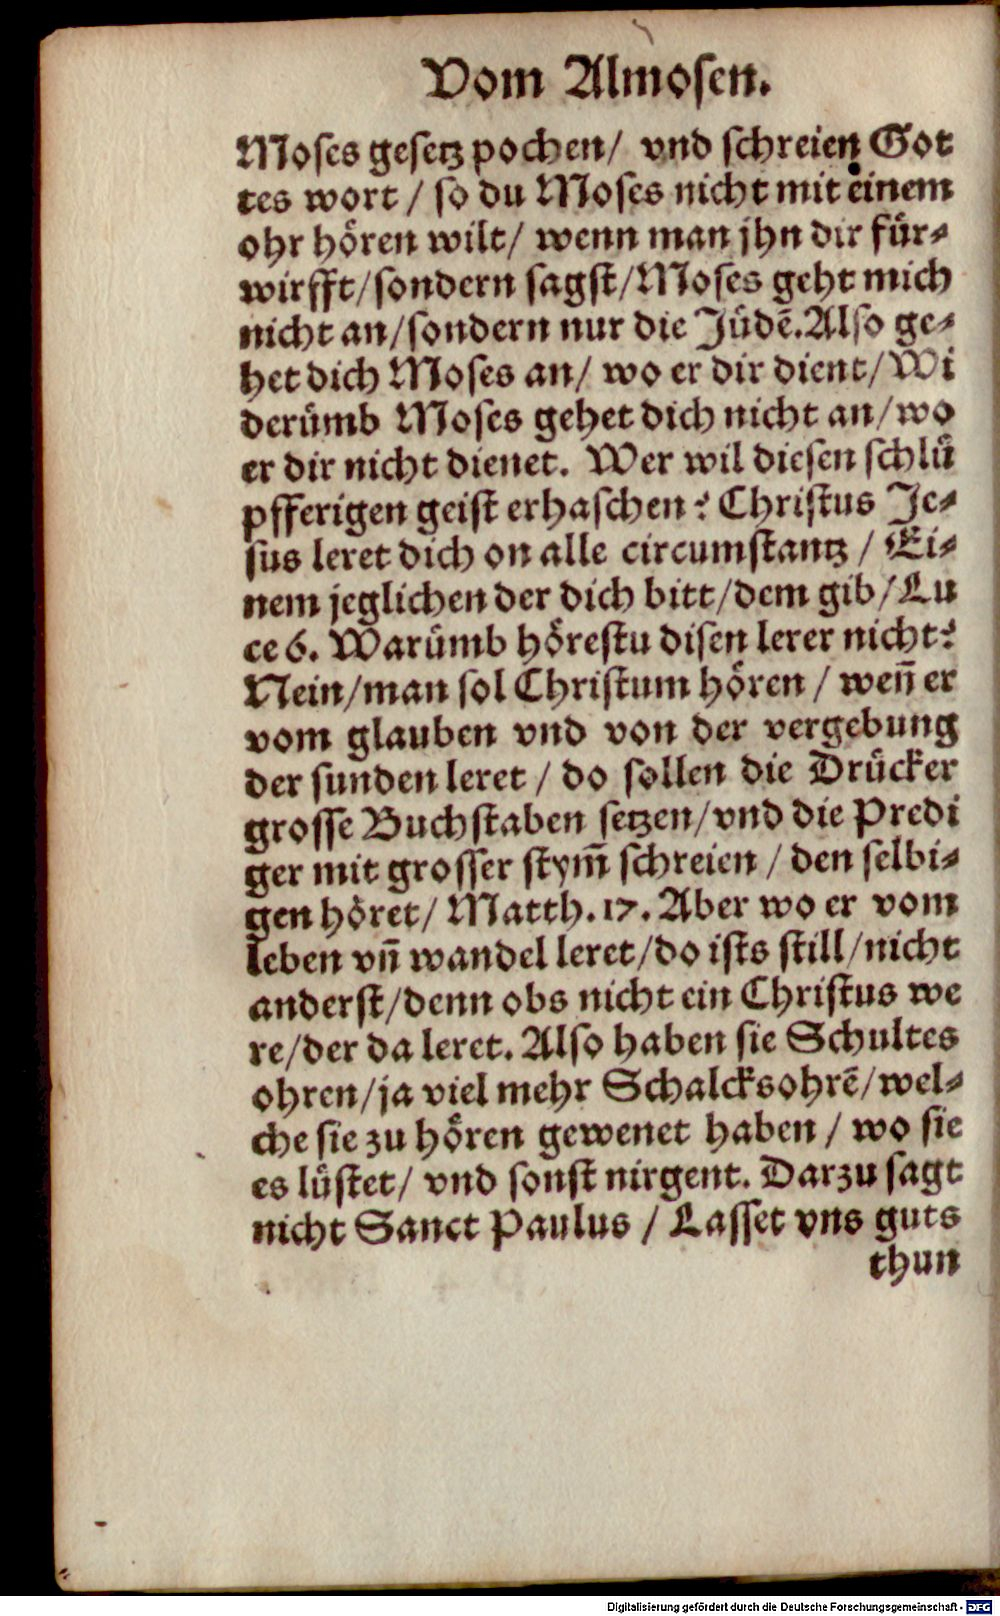 Vom Almosen.
Moses gesetz pochen/ vnd schreien Got
tes wort / so du Moses nicht mit einem
ohr hören wilt/ wenn man jhn dir für-
wirfft/sondern sagst/Moses geht mich
nicht an/sondern nur die Jüdē. Also ge-
het dich Moses an/ wo er dir dient/ Wi
derümb Moses gehet dich nicht an/ wo
er dir nicht dienet. Wer wil diesen schlü
pfferigen geist erhaschen? Christus Je-
sus leret dich on alle circumstantz / Ei-
nem jeglichen der dich bitt/dem gib/ Lu
ce 6. Warümb hörestu disen lerer nicht?
Nein/man sol Christum hören / weñ er
vom glauben vnd von der vergebung
der sunden leret / do sollen die Drücker
grosse Buchstaben setzen/vnd die Predi
ger mit grosser stym̄ schreien / den selbi-
gen höret/ Matth. 17. Aber wo er vom
leben vñ wandel leret/do ists still/nicht
anderst/denn obs nicht ein Christus we
re/der da leret. Also haben sie Schultes
ohren/ja viel mehr Schalcksohrē/wel-
che sie zu hören gewenet haben / wo sie
es lüstet/ vnd sonst nirgent. Darzu sagt
nicht Sanct Paulus / Lasset vns guts
thun
Digitalisierung gefördert durch die Deutsche Forschungsgemeinschaft - DFG